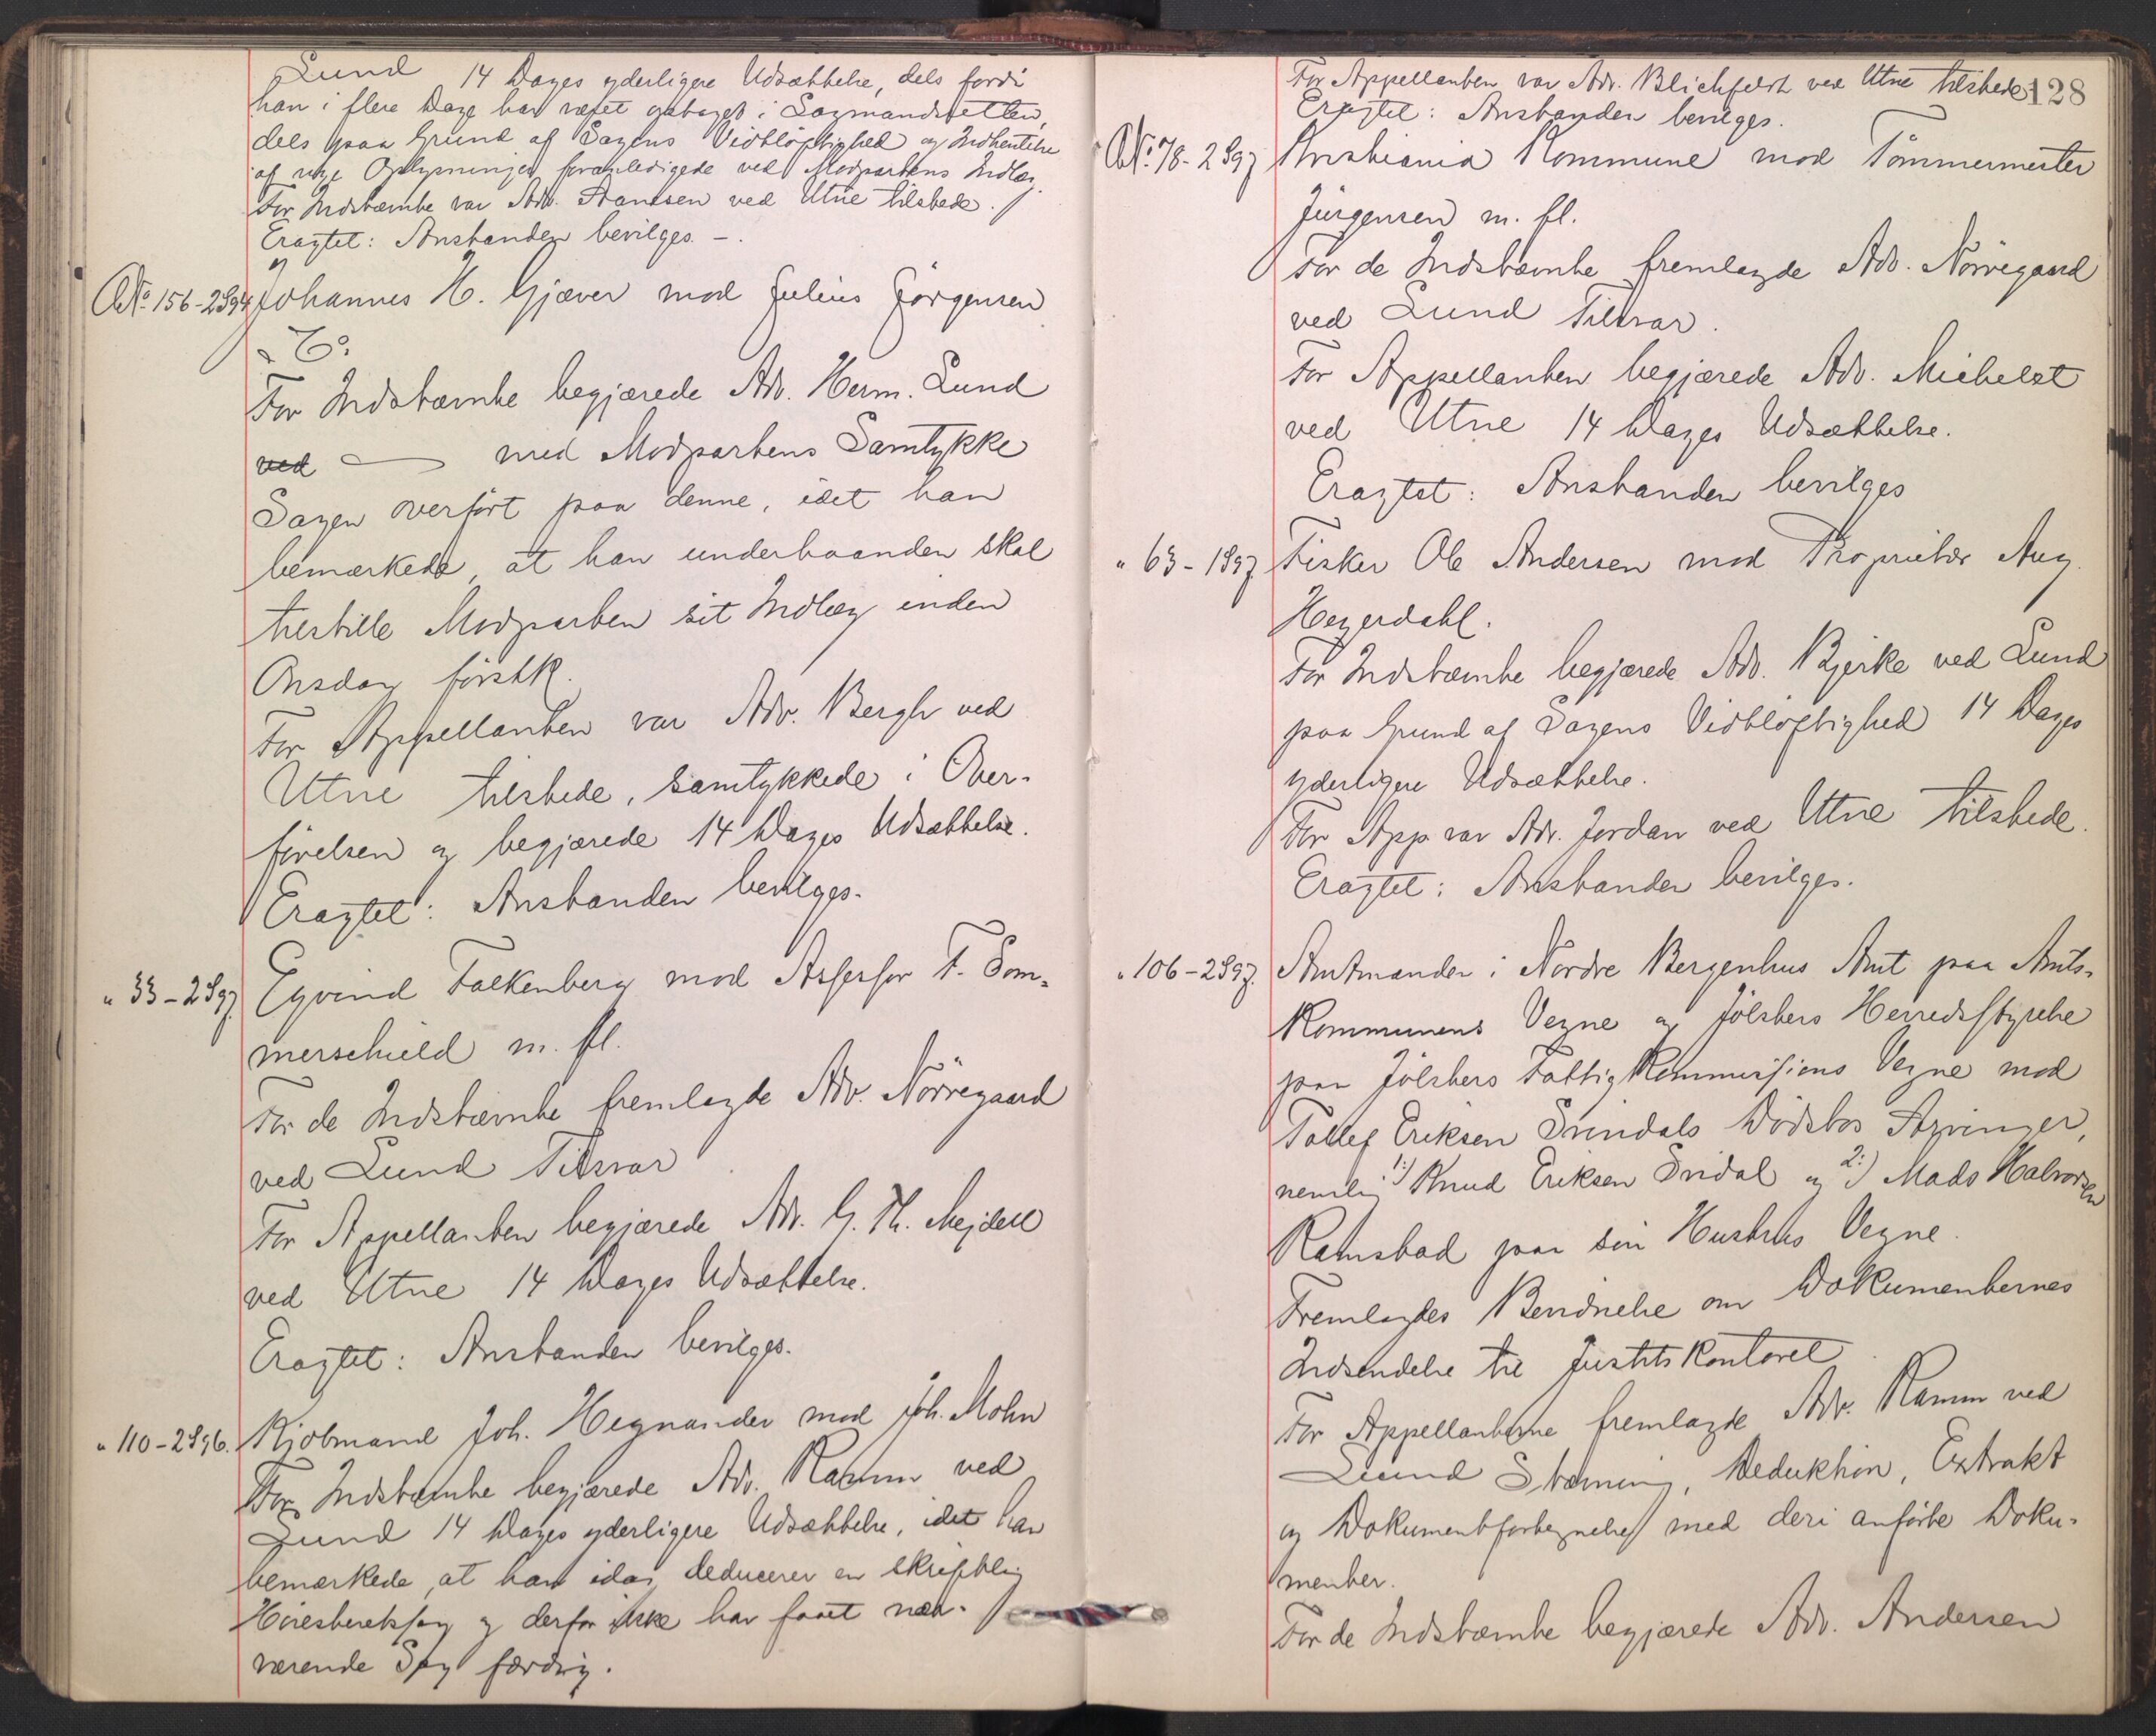 Lund 14 Dages yderligere Udsættelse, dels fordi
han i flere Dage har været optaget i Lagmandsretten,
dels paa Grund af Sagens Vidtløftighed og Indhentelse
af nye Oplysninger, foranledigede ved Modpartens Indlæg.
For Indstævnte var Adv. Hansen ved Utne tilstede.
Eragtet: Anstanden bevilges. -.
No. 156-2S94 Johannes H. Gjæver mod Julius Jörgensen
& Co.
For Indstævnte begjærede Adv. Herm. Lund
ved — med Modpartens Samtykke
Sagen overfört paa denne, idet han
bemærkede, at han underhaanden skal
tilstille Modparten sit Indlæg inden
Onsdag förstk.
For Appellanten var Adv. Bergh ved
Utne tilstede, samtykkede i Over-
förelsen og begjærede 14 Dages Udsættelse.
Eragtet: Anstanden bevilges.
" 33-2S97 Eyvind Falkenberg mod Assessor F. Som-
merschield m. fl.
For de Indstævnte fremlagde Adv. Nörregaard
ved Lund Tilsvar
For Appellanten begjærede Adv. G. Th. Mejdell
ved Utne 14 Dages Udsættelse.
Eragtet: Anstanden bevilges.
" 110-2S96. Kjøbmand Joh. Hegnander mod Joh. Mohn
For Indstævnte begjærede Adv. Ramm ved
Lund 14 Dages yderligere Udsættelse, idet han
bemærkede, at han idag deducerer en skriftlig
Höiesteretssag og derfor ikke har faaet nær-
værende Sag færdig.
For Appellanten var Adv. Blichfeldt ved Utne tilstede.
128
Eragtet: Anstanden bevilges.
No. 78-2S97 Kristiania Kommune mod Tömmermester
Jürgensen m. fl.
For de Indstævnte fremlagde Adv. Nörregaard
ved Lund Tilsvar.
For Appellanten begjærede Adv. Michelet
ved Utne 14 Dages Udsættelse.
Eragtet: Anstanden bevilges
" 63-1S97 Fisker Ole Andersen mod Proprietær Aug.
Heyerdahl.
For Indstævnte begjærede Adv. Bjerke ved Lund
paa Grund af Sagens Vidtløftighed 14 Dages
yderligere Udsættelse.
For App. var Adv. Jordan ved Utne tilstede.
Eragtet: Anstanden bevilges.
" 106-2S97. Amtmanden i Nordre Bergenhus Amt paa Amts-
Kommunens Vegne og Jölsters Herredsstyrelse
paa Jölsters Fattigkommissions Vegne mod
Tollef Eriksen Svindals Dödsbos Arvinger,
nemlig 1:) Knud Eriksen Svidal og 2:) Mads Halvorsen
Ramstad paa sin Hustrus Vegne.
Fremlagdes Bevidnelse om Dokumenternes
Indsendelse til Justitskontoret
For Appellanterne fremlagde Adv. Ramm ved
Lund Stævning, Deduktion, Extrakt
og Dokumentfortegnelse med deri anförte Doku-
menter.
For de Indstævnte begjærede Adv. Andersen